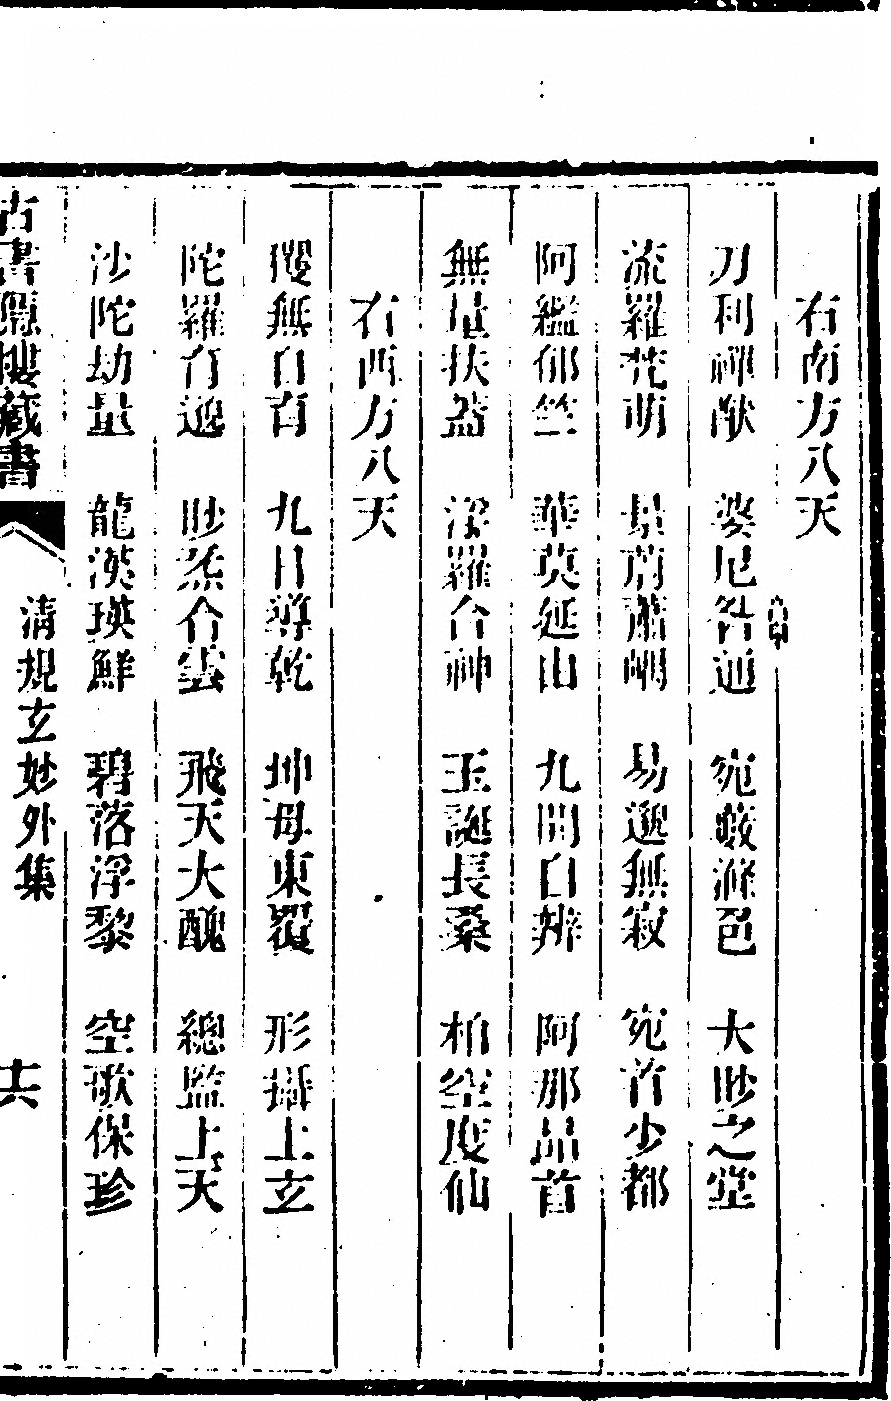 右南方八天
刀利禪猷　婆尼咎通　宛藪滌色　大眇之堂
流羅梵萌　景蔚蕭嵎　易邈無寂　宛首少都
阿繿郁竺　華莫延由　九開自辨　阿那品首
無量扶蓋　浮羅合神　玉誕長桑　柏空度仙
右西方八天
獶無自育　九日導乾　坤母東覆　形攝上玄
陀羅育邈　眇炁合雲　飛天大醜　總監上天
沙陀劫量　龍漢瑛鮮　碧落浮黎　空歌保珍
古書隱樓藏書　清規玄妙外集　十六